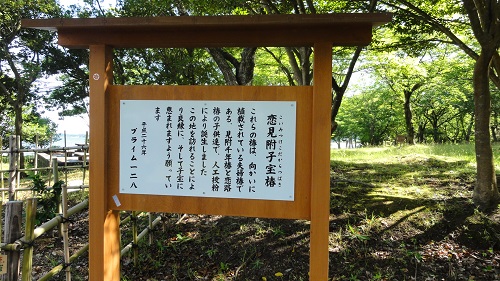 こいみつけこだからつばき
恋見附子宝椿
これらの椿は、向かいに
植栽されている夫婦椿で
ある、見附千年椿と恋路
椿の子供達で、人工授粉
により誕生しました。
この地を訪れることによ
り良縁に、そして子宝に
恵まれますよう願ってい
ます
平成二十六年
プライム一二八